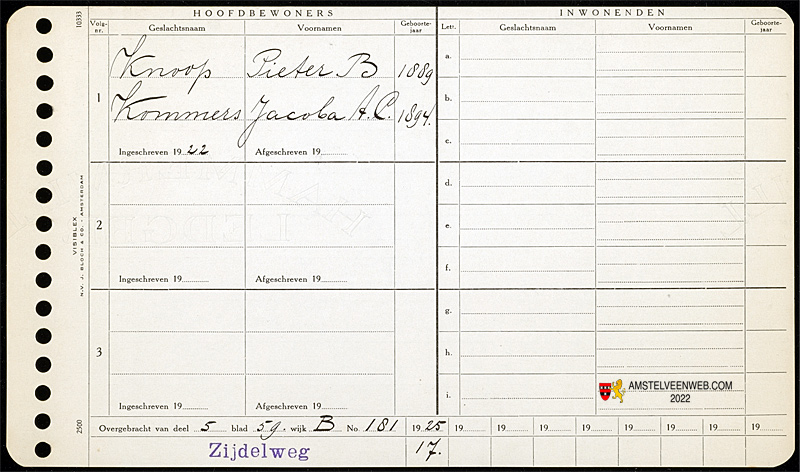 HOOFDBEWONERS
INWONENDEN
Volg-nr.
Geslachtsnaam
Voornamen
Geboorte-jaar
Letr.
Geslachtsnaam
Voornamen
Geboorte-jaar
1
Knoop Pieter B 1889
Kommers Jacoba A.C. 1894.
Ingeschreven 1922 Afgeschreven 19
2
Ingeschreven 19 Afgeschreven 19
3
Ingeschreven 19 Afgeschreven 19
a.
b.
c.
d.
e.
f.
g.
h.
i.
AMSTELVEENWEB.COM
2022
Overgebracht van deel 5 blad 59. wijk B No. 181 1925 19 19 19 19 19 19 19 19
Zijdelweg 17.
10333
VISIBLEX
N.V. J. BLOCH & CO. - AMSTERDAM
2500